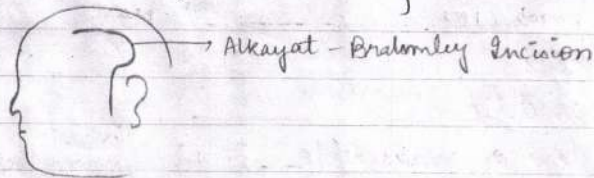 Alkayat - Bralomley Incision